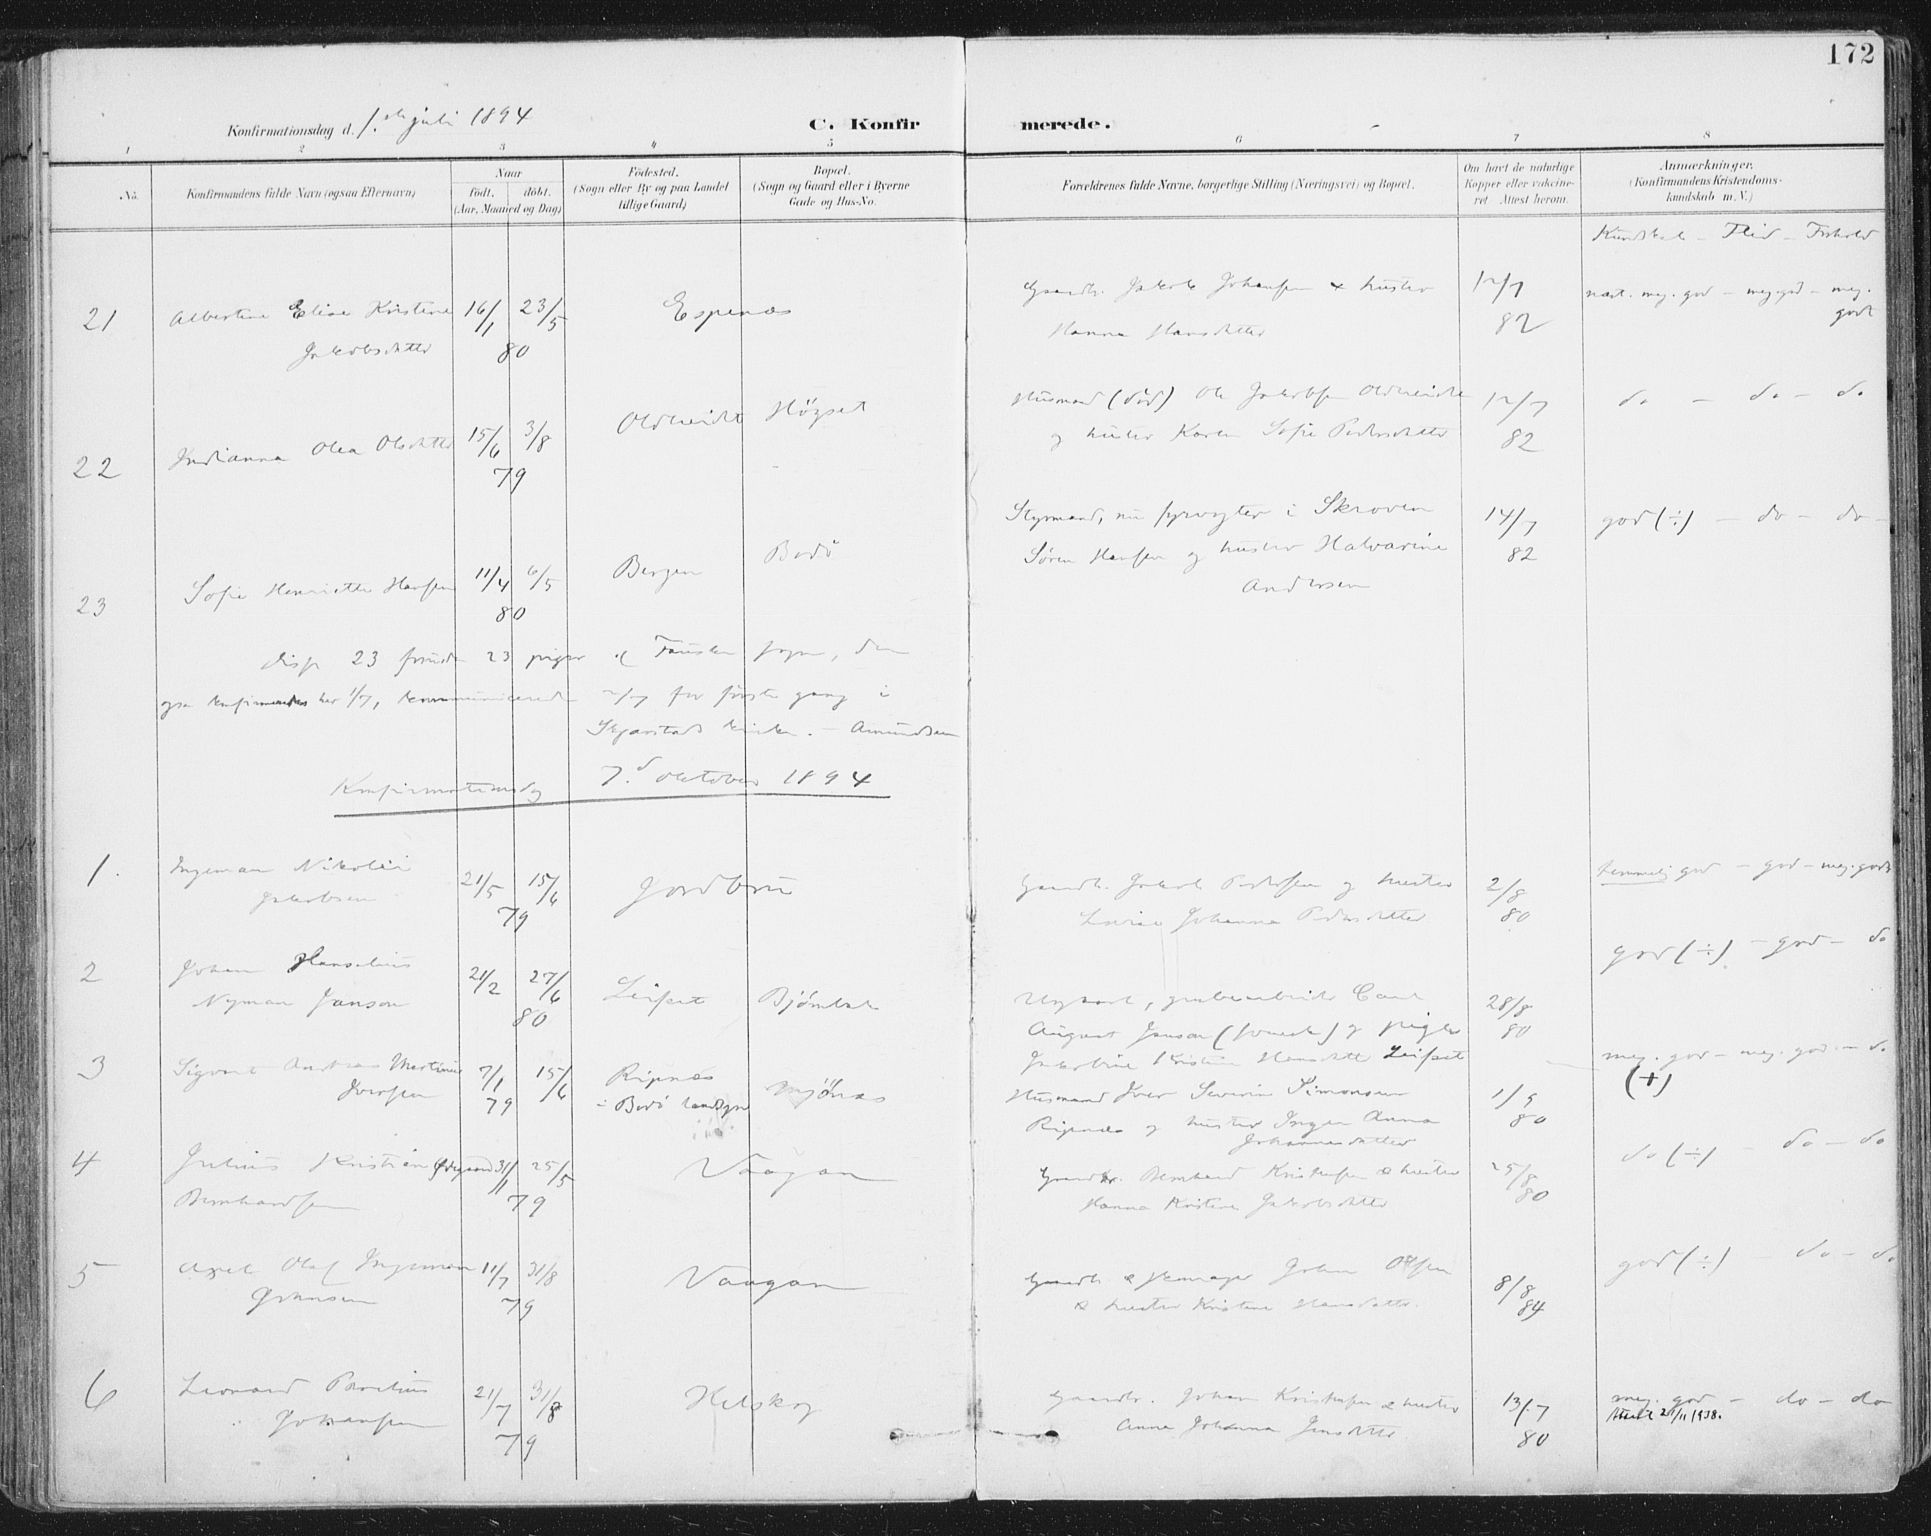 172
Konfirmationsdag d. 1. juli 1894
C. Konfirmerede.
1 2 3 4 5 6 7 8
No.
Konfirmandens fulde Navn (ogsaa Efternavn)
Naar
født. døbt.
(Aar, Maaned og Dag)
Fødested.
(Sogn eller By og paa Landet
tillige Gaard)
Bopæl.
(Sogn og Gaard eller i Byerne
Gade og Hus-No.
Forældrenes fulde Navne, borgerlige Stilling (Næringsvei) og Bopæl.
Om havt de naturlige
Kopper eller vakcine-
ret Attest herom.
Anmærkninger.
(Konfirmandens Kristendoms-
kundskab m. V.)
Kundskab - Flid - Forhold
21 Albertine Elise Kristine 16/1 23/5 Espenæs Gaardb. Jakob Johansen & hustru 12/7 næst. meg. god - meg. god - meg.
Jakobsdatter 80 Hanna Hansdatter 82 godt
22 Indianna Olea Olsdatter 15/6 3/8 Oldereidet Høgset Husmand (død) Ole Jakobsen Oldereidet 12/7 do - do - do
79 og hustru Karen Sofie Pedersdatter 82
23 Sofie Henriette Hansen 11/4 6/5 Bergen Bodø Styrmand, nu fyrvogter i Skroven 14/7 god (÷) - do - do -
80 Søren Hansen og hustru Halvarine 82
Andersen
disse 23 foruden 23 piger af Fauske sogn, der
ogsaa konfirmeredes her 1/7, kommunicerede 2/7 for første gang i
Skjerstads kirke. - Amundsen
Konfirmationsdag 7.d oktober 1894
1. Ingeman Nikolai 21/5 15/6 Jordbru Gaardb. Jakob Pedersen og hustru 2/8 temmelig god - god - meg. godt
Jakobsen 79 Johanna Pedersdatter 80
2 Johan Hanselius 21/2 27/6 Leifset Bjørnbak Ugkarl, grubearbeider Carl 28/8 god (÷) - god - do
Nyman Janson 80 August Janson (svensk) og pige 80
Jakobine Kristine Hansdatter Leifset
3 Sigvart Andreas Martinus 7/1 15/6 Ripnæs Mjønæs Husmand Iver Severin Simonsen 1/9 meg. god - meg. god - do
Iversen 79 i Bodø landsogn Ripnæs og hustru Inger Anna 80 (+)
Johannesdatter
4 Julius Kristian Ødegaard 31/1 25/5 Vaagan Gaardbr. Bernhard Kristensen & hustru 25/8 do (÷) - do - do
Bernhardsen 11 79 Hanna Kristine Jakobsdatter 80
5 Axel Olaf Ingeman 11/7 31/8 Vaagan Gaardb. & Johan Olsen 8/8 god (÷) - do - do
Johansen 79 & hustru Kristine Hansdatter. 84
6 Leonard 21/7 31/8 Helskog Gaardbr. Johan Kristensen & hustru 13/7 meg. god - do - do
Johansen 79 Anna Johanna Jensdatter 80 Attest 21/11 1938.